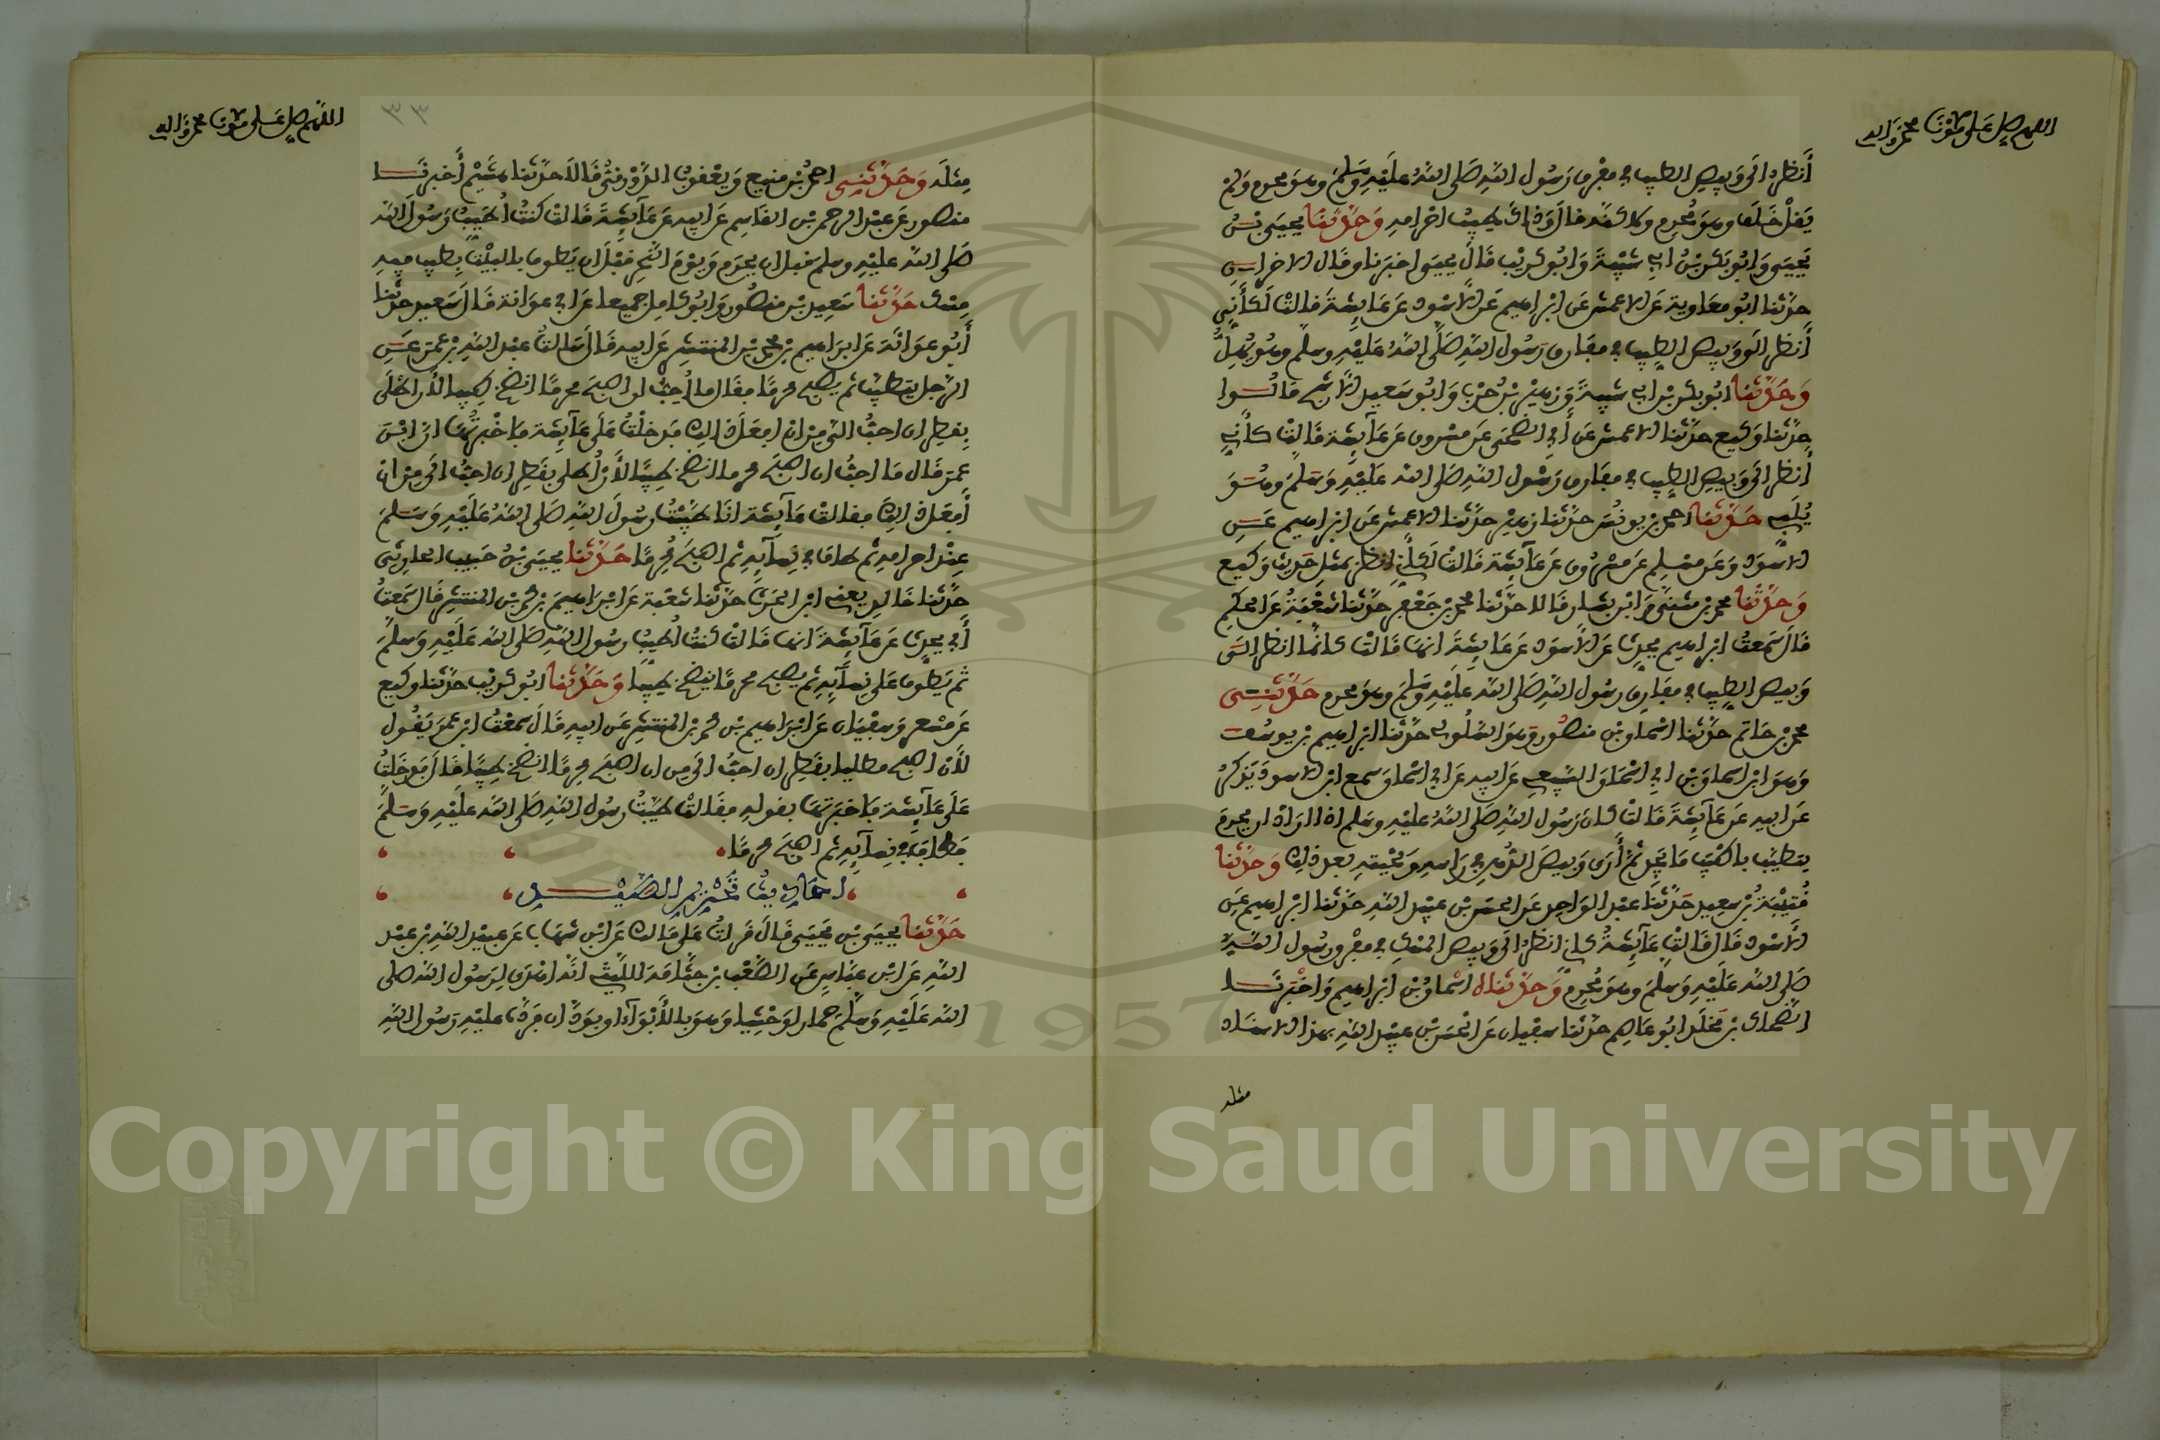 اللهم صل على مولانا محمد وآله
أَنظر إلى وبيص الطيب في مفرق رسول الله صلى الله عليه وسلم وهو محرم ولم
يقل خلف وهو محرم ولاكنه قال وذاك طيب احرامه وحدثنا يحيى بن
يحيى وابو بكر بن ابي شيبة وابو كريب قال يحيى اخبرنا وقال الاخران
حدثنا ابو معاوية عن الاعمش عن ابراهيم عن الاسود عن عايشة قالت لكأني
أنظر الى وبيص الطيب في مفارق رسول الله صلى الله عليه وسلم وهو يهل
وحدثنا ابو بكر بن ابي شيبة وزهير بن حرب وابو سعيد الاشج قالوا
حدثنا وكيع حدثنا الاعمش عن أبي الضحى عن مسروق عن عآيشة قالت كأني
أنظر الى وبيص الطيب في مفارق رسول الله صلى الله عليه وسلم وهو
يلبي حدثنا احمد بن يونس حدثنا زهير حدثنا الاعمش عن ابراهيم عن
الاسود وعن مسلم عن مسروق عن عآيشة قالت لكأني انظر بمثل حديث وكيع
وحدثنا محمد بن مثنى وابن بشار قالا حدثنا محمد بن جعفر حدثنا شعبة عن الحكم
قال سمعت ابراهيم يحدث عن الاسود عن عايشة انها قالت كانما انظر الى
وبيص الطيب في مفارق رسول الله صلى الله عليه وسلم وهو محرم حدثني
محمد بن حاتم حدثنا اسحاق بن منصور وهو السلولي حدثنا ابراهيم بن يوسف
وهو ابن اسحاق بن ابي اسحاق السبيعي عن ابيه عن ابي اسحاق سمع ابن الاسود يذكر
عن ابيه عن عآيشة قالت كان رسول الله صلى الله عليه وسلم اذا اراد ان يحرم
يتطيب باطيب ما يجد ثم أرى وبيص الدهن في راسه ولحيته بعد ذلك وحدثنا
قتيبة بن سعيد حدثنا عبد الواحد عن الحسن بن عبيد الله حدثنا ابراهيم عن
الاسود قال قالت عآيشة كاني انظر الى وبيص المسك في مفرق رسول الله
صلى الله عليه وسلم وهو محرم وحدثناه اسحاق بن ابراهيم واخبرنا
الضحاك بن مخلد ابو عاصم حدثنا سفيان عن الحسن بن عبيد الله بهذا الاسناد
مثله
اللهم صل على مولانا محمد وآله
٣٣
مثله وحدثني احمد بن منيع ويعقوب الدورقي قالا حدثنا هشيم أخبرنا
منصور عن عبد الرحمن بن القاسم عن ابيه عن عآيشة قالت كنت أطيب رسول الله
صلى الله عليه وسلم قبل ان يحرم ويوم النحر قبل ان يطوف بالبيت بطيب فيه
مسك حدثنا سعيد بن منصور وابو كامل جميعا عن ابي عوانة قال سعيد حدثنا
أبو عوانة عن ابراهيم بن محمد بن المنتشر عن ابيه قال سالت عبد الله بن عمر عن
الرجل يتطيب ثم يصبح محرما فقال ما أحب ان اصبح محرما انضخ طيبا لأن اطلى
بقطران احب الي من ان افعل ذلك فدخلت على عآيشة فاخبرتها ان ابن
عمر قال ما احب ان اصبح محرما انضخ طيبا لأن أطلى بقطران احب الي من ان
أفعل ذلك فقالت عآيشة انا طيبت رسول الله صلى الله عليه وسلم
عند احرامه ثم طاف في نسآيه ثم اصبح محرما حدثنا يحيى بن حبيب الحارثي
حدثنا خالد يعني ابن الحرث حدثنا شعبة عن ابراهيم بن محمد بن المنتشر قال سمعت
أبي يحدث عن عآيشة انها قالت كنت أطيب رسول الله صلى الله عليه وسلم
ثم يطوف على نسآيه ثم يصبح محرما ينضخ طيبا وحدثنا ابو كريب حدثنا وكيع
عن مسعر وسفيان عن ابراهيم بن محمد بن المنتشر عن ابيه قال سمعت ابن عمر يقول
لأن اصبح مطليا بقطران احب الي من ان اصبح محرما انضخ طيبا قال فدخلت
على عآيشة فاخبرتها بقوله فقالت طيبت رسول الله صلى الله عليه وسلم
فطاف في نسآيه ثم اصبح محرما
احاديث تحريم الصيد
حدثنا يحيى بن يحيى قال قرات على مالك عن ابن شهاب عن عبيد الله بن عبد
الله عن ابن عباس عن الصعب بن جثامة الليثي انه اهدى لرسول الله صلى
الله عليه وسلم حمارا وحشيا وهو بالأبوآء او بودان فرده عليه رسول الله
1957
Copyright © King Saud University